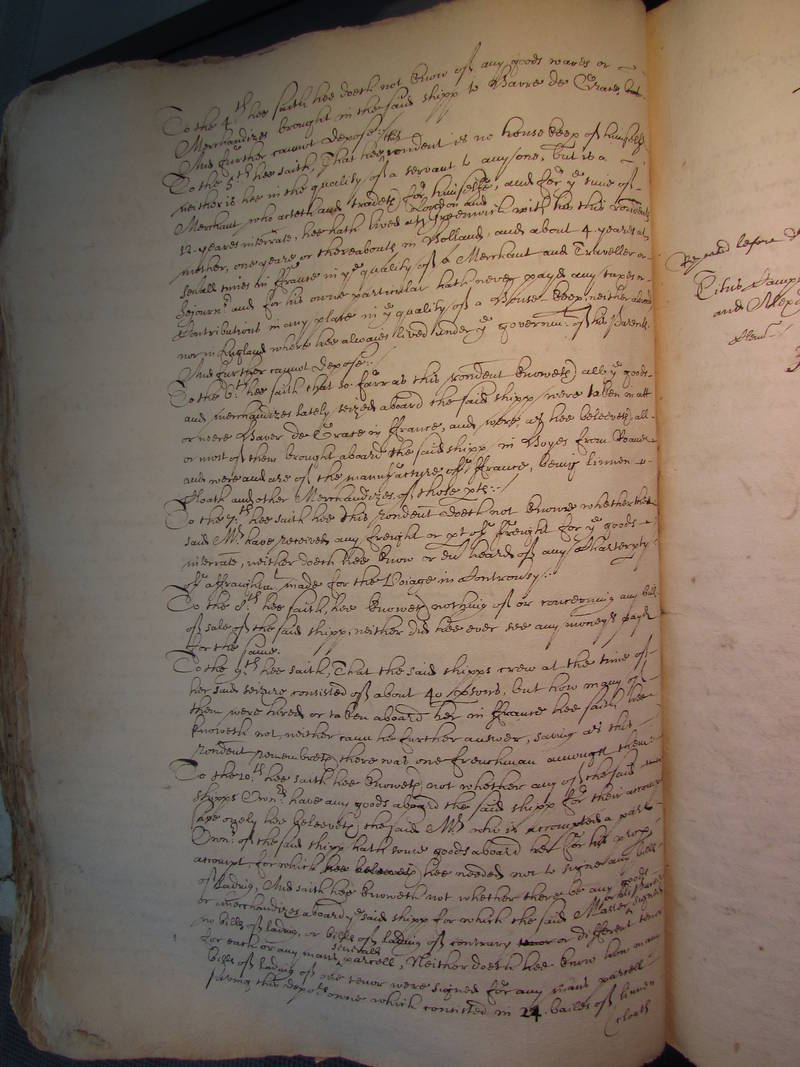 To the 4th hee saith hee doeth not know of any goods wares or
Merchandizes brought in the said shipp to Havre de Grace, but
And further cannot depose:/
To the 5th hee saith, That hee this rondent is no house keep of himselfe
neither is hee in the quality of a servant to anyone, but is a
Merchant who acteth and tradeth for himselfe, and for ye time of
12 yeares interrate, hee hath lived at London and Greenwich with his this rondents
mother, one yeare or thereabouts in Holland, and about 4 yeares at
severall times in ffrance in ye quality of a Merchant and Traveller or
Sejournr and for his owne particular hath never payd any taxes or
Contributions in any place in ye quality of a House keep, neither abroad
nor in England where hee alwaies lived under ye governmt of his Parents
And further cannot depose:/
To the 6th hee saith that so farr as this rondent knoweth all ye goods
and merchandizes lately seized aboard the said shipp were taken in att
or neere Haver de Grace in ffrance, and were as hee beleeveth all
or most of them brought aboard the said shipp in Hoyes from Roane
and were and are of the manufacture of ffrance, being linnen
Cloath and other Merchandizes of those pts:/
To the 7th hee saith hee this rondent doeth not knowe whether the
said Mr have received any freight or pt of freight for ye goods
interrate, neither doeth hee know or ever heard of any Charterpty
of affraightmt made for the Voiage in Controversy:/
To the 8th hee saith, hee knoweth nothing of or concerning any bill
of sale of the said shipp, neither did hee ever see any moneys payd
for the same.
To the 9th hee saith, That the said shipps crew at the time of
her said seizure consisted of about 40 psons, but how many of
them were hired or taken aboard her in ffrance hee saith hee
knoweth not, neither cann he further answer, saving as this
rondent remembreth there was one frenchman amongst them:
To the 10th hee saith hee knoweth not whether any of the said
shipps Ownrs have any goods aboard the said shipp for their accompt
save onely hee beleeveth the said Mr who is accompted a part
Ownr of the said shipp hath some goods aboard her for his prop
accompt for which hee beleeveth hee needed not to signe any bills
of lading, And saith hee knoweth not whether there be any goods
or merchandizes aboard ye said shipp for which the said Master signed
no bills of lading, or bills of lading of contrary tenor or different tenor
for each or any mans severall parcell, Neither doeth hee know how many
bills of lading of one tenor were signed for any mans parcell
saving this depots owne which consisted in 24 bailes of linnen
cloath
Repeated before
Titus
and Alex